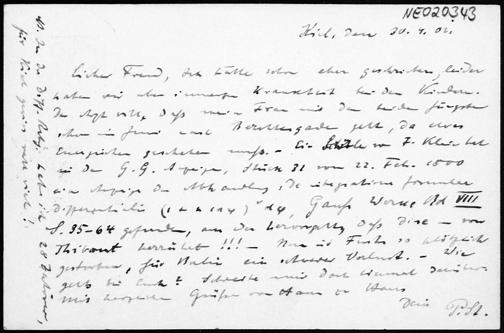 NE020343
Kiel, den 20.4.02.
Lieber Freund, ich hätte schon eher geschrieben, leider
haben wir aber immerzu Krankheit bei den Kindern.
Der Arzt will, daß meine Frau mit den beiden jüngsten
schon im Juni nach Berchtesgaden geht, da etwas
Energisches geschehen muß. – Ein von F. Klein hat
in den G. G. Anzeigen, Stück 31 vom 22. Feb. 1800
eine Anzeige der Abhandlung, De integratione formulae
differentialis (1 + n cos φ)^ν dφ, Gauß Werke Bd VIII
S. 35-64 gefunden, aus der hervorgeht, daß diese – von
Thibaut herrührt!!! – Nun ist Fuchs so plötzlich
gestorben, für Berlin ein schwerer Verlust. – Wie
geht es Euch? Schreibe mir doch einmal darüber.
Mit herzlichen Grüßen von Haus zu Haus
Dein P. St.
für Kiel ganz viel!